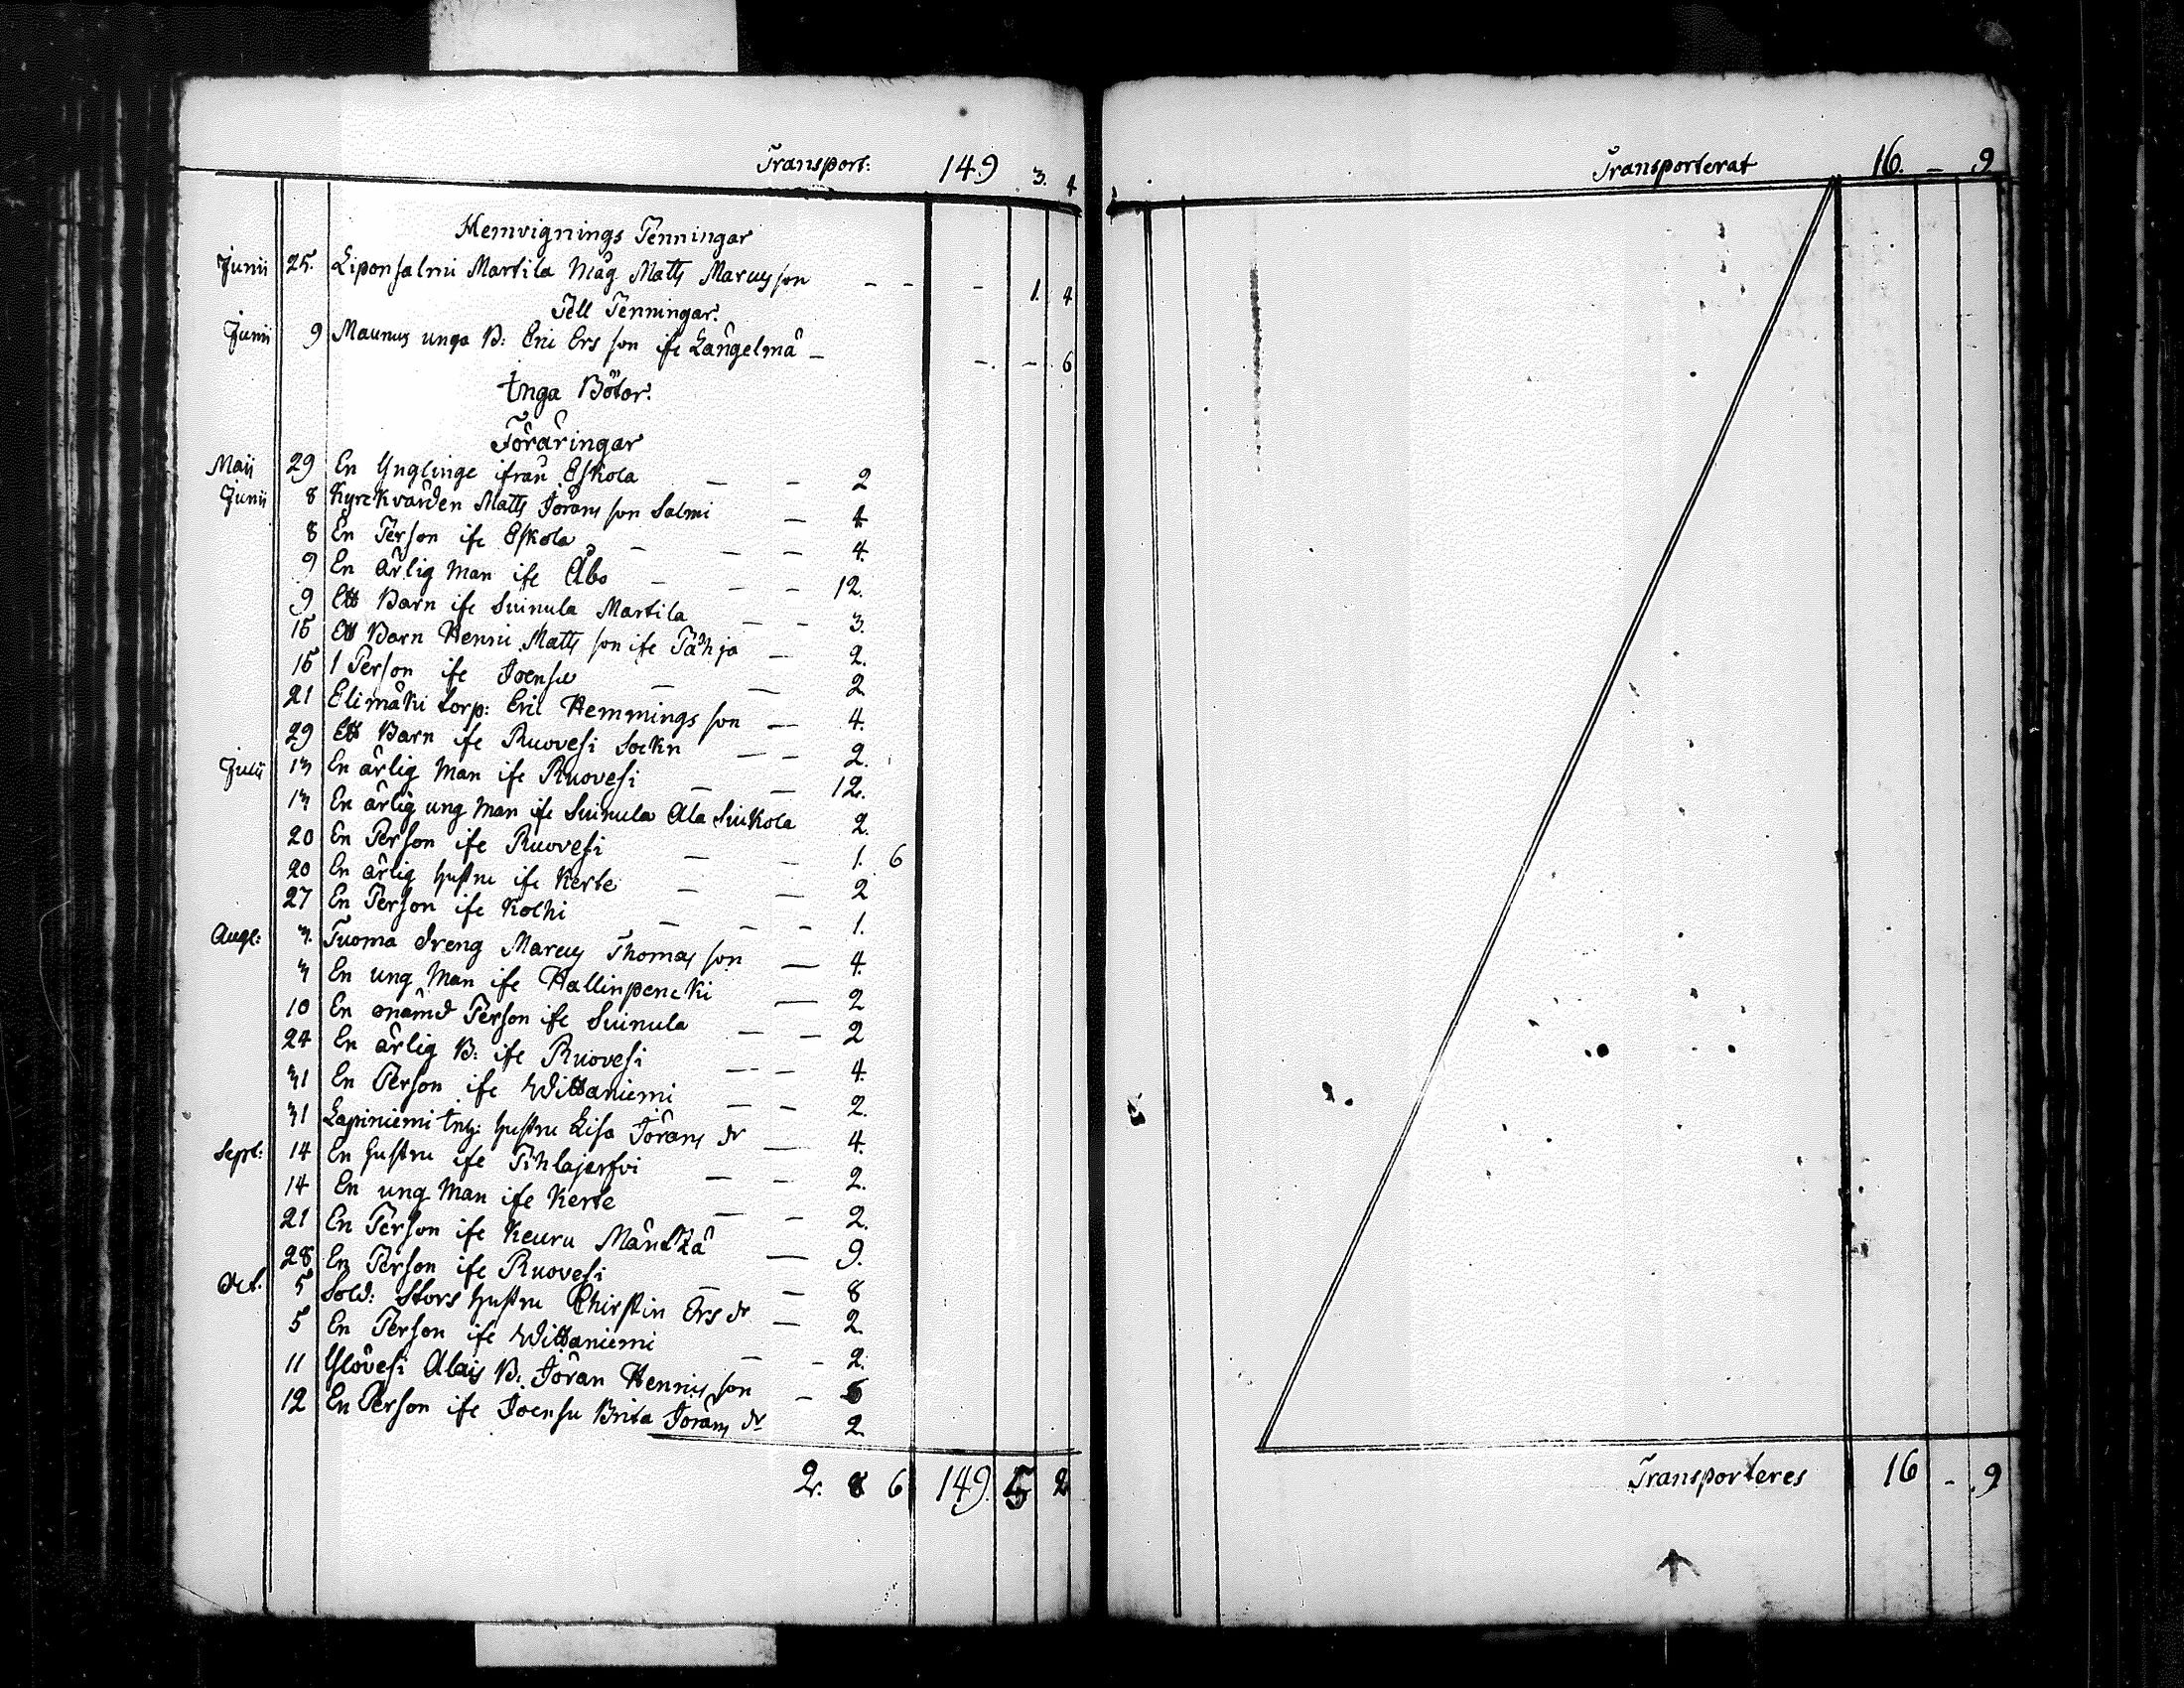 Transport: 149 3. 4
Hemvignings Penningar
Junii 25. Liponsalmi Martila Måg Matts Marcusson - - - 1. 4
Tell Penningar.
Junii 9 Maunus unga B: Eric Ersson ifr Längelmä - - - 6
Inga Böter.
Föräringar
Maij 29 En Ynglinge ifrån Eskola - - 2
Junii 8 Kyrckvärden Matts Jöransson Salmi - 4
8 En Person ifr Eskola - - - 4.
9 En ärlig Man ifr Åbo - - - 12.
9 Ett Barn ifr Suinula Martila - - 3.
15 Ett Barn Henric Mattsson ifr Pähja - 2.
15 1 Person ifr Joensu - - 2
21 Elimäki torp: Eric Hemmingsson - 4.
29 Ett Barn ifr Ruovesi Sockn - - 2.
Julii 13 En ärlig Man ifr Ruovesi - - 12.
13 En ärlig ung Man ifr Suinula Ala Suikola 2.
20 En Person ifr Ruovesi - - 1. 6
20 En ärlig hustru ifr Kerte - - 2
27 En Person ifr Kolhi - - - 1.
Aug: 3. Tuoma Dreng Marcus Thomasson - 4.
3 En ung Man ifr Hallinpencki - 2
10 En onämd Person ifr Suinula - - 2
24 En ärlig B: ifr Ruovesi - - 4.
31 En Person ifr Wittaniemi - - 2.
31 Lapiniemi hustru Lisa Jörans dr - 4.
Sept: 14 En hustru ifr Pihlajerfvi - - 2.
14 En ung Man ifr Kerte - - 2.
21 En Person ifr Keuru Mändzä - 9.
28 En Person ifr Ruovesi - - 8
Oct. 5 Sold: Stors hustru Chirstin Ers dr - 2
5 En Person ifr Wittaniemi - - 2.
11 Ylövesi Alais B: Jöran Henricsson - 6
12 En Person ifr Joensu Brita Jörans dr 2
2. 8 6 149. 5 2
Transporterat 16. - 9
Transporteres 16 - 9